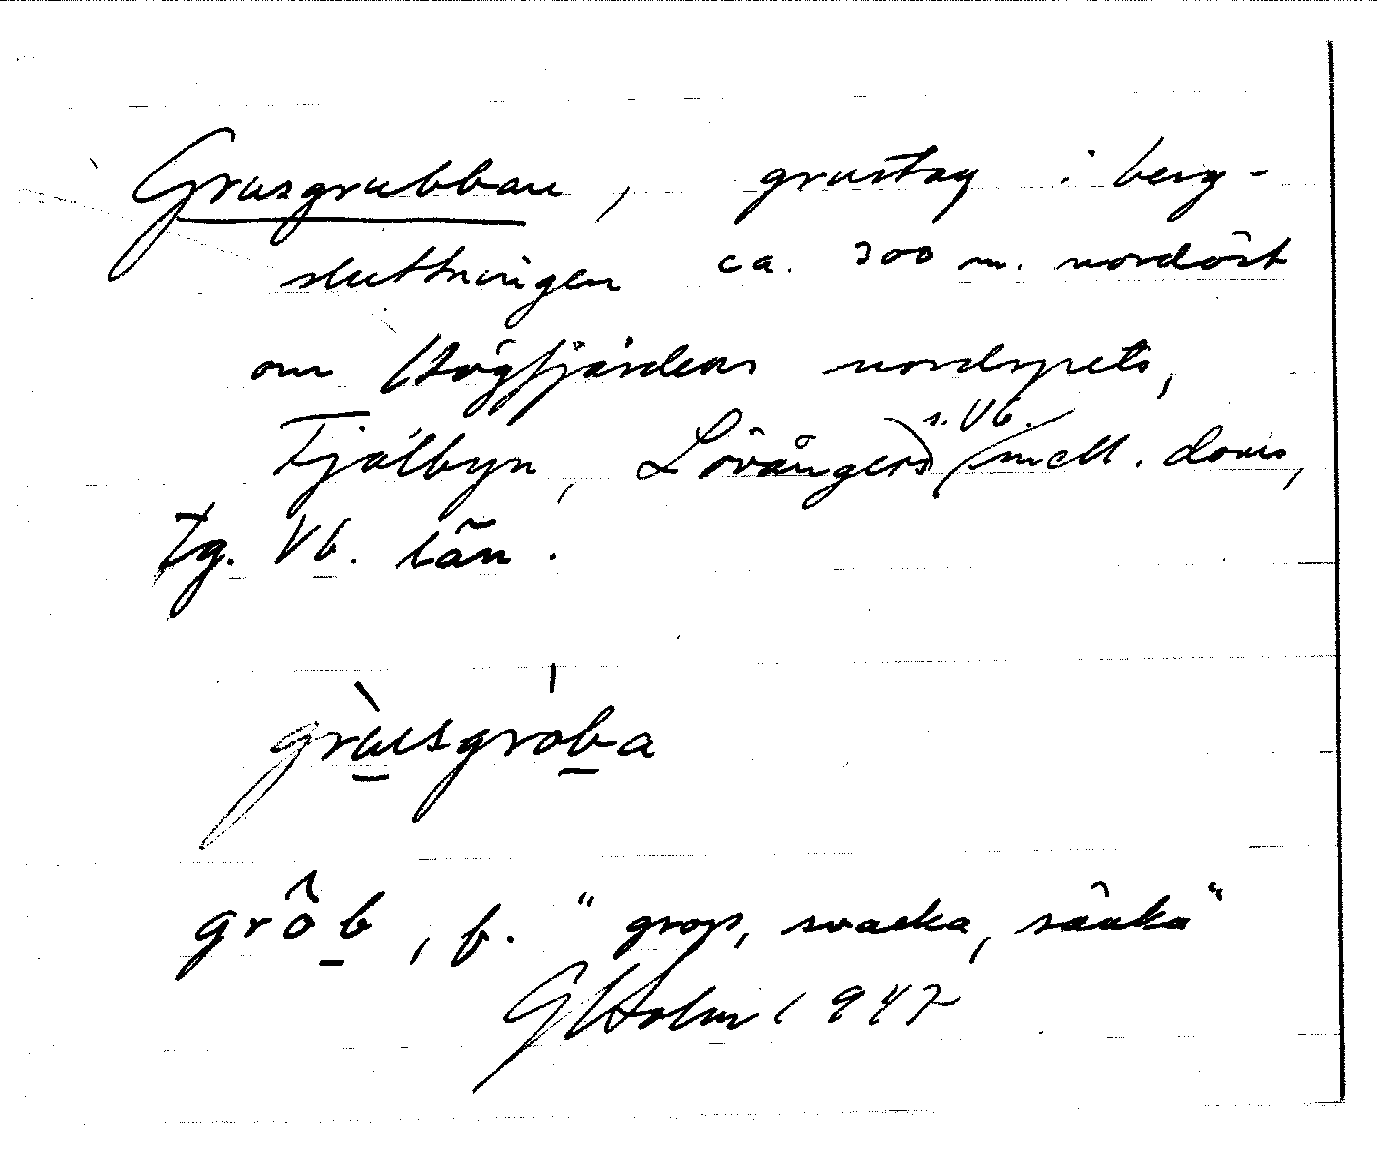 Grusgrubban, grustag i berg-
sluttningen ca. 300 m. nordöst
om Högfjärdens nordspets,
Fjälbyn, Lövångers s. Vb. mell. doms,
tg. Vb. län.
gràusgròba
grôb, f. "grop, svacka, sänka"
GHolm 1947